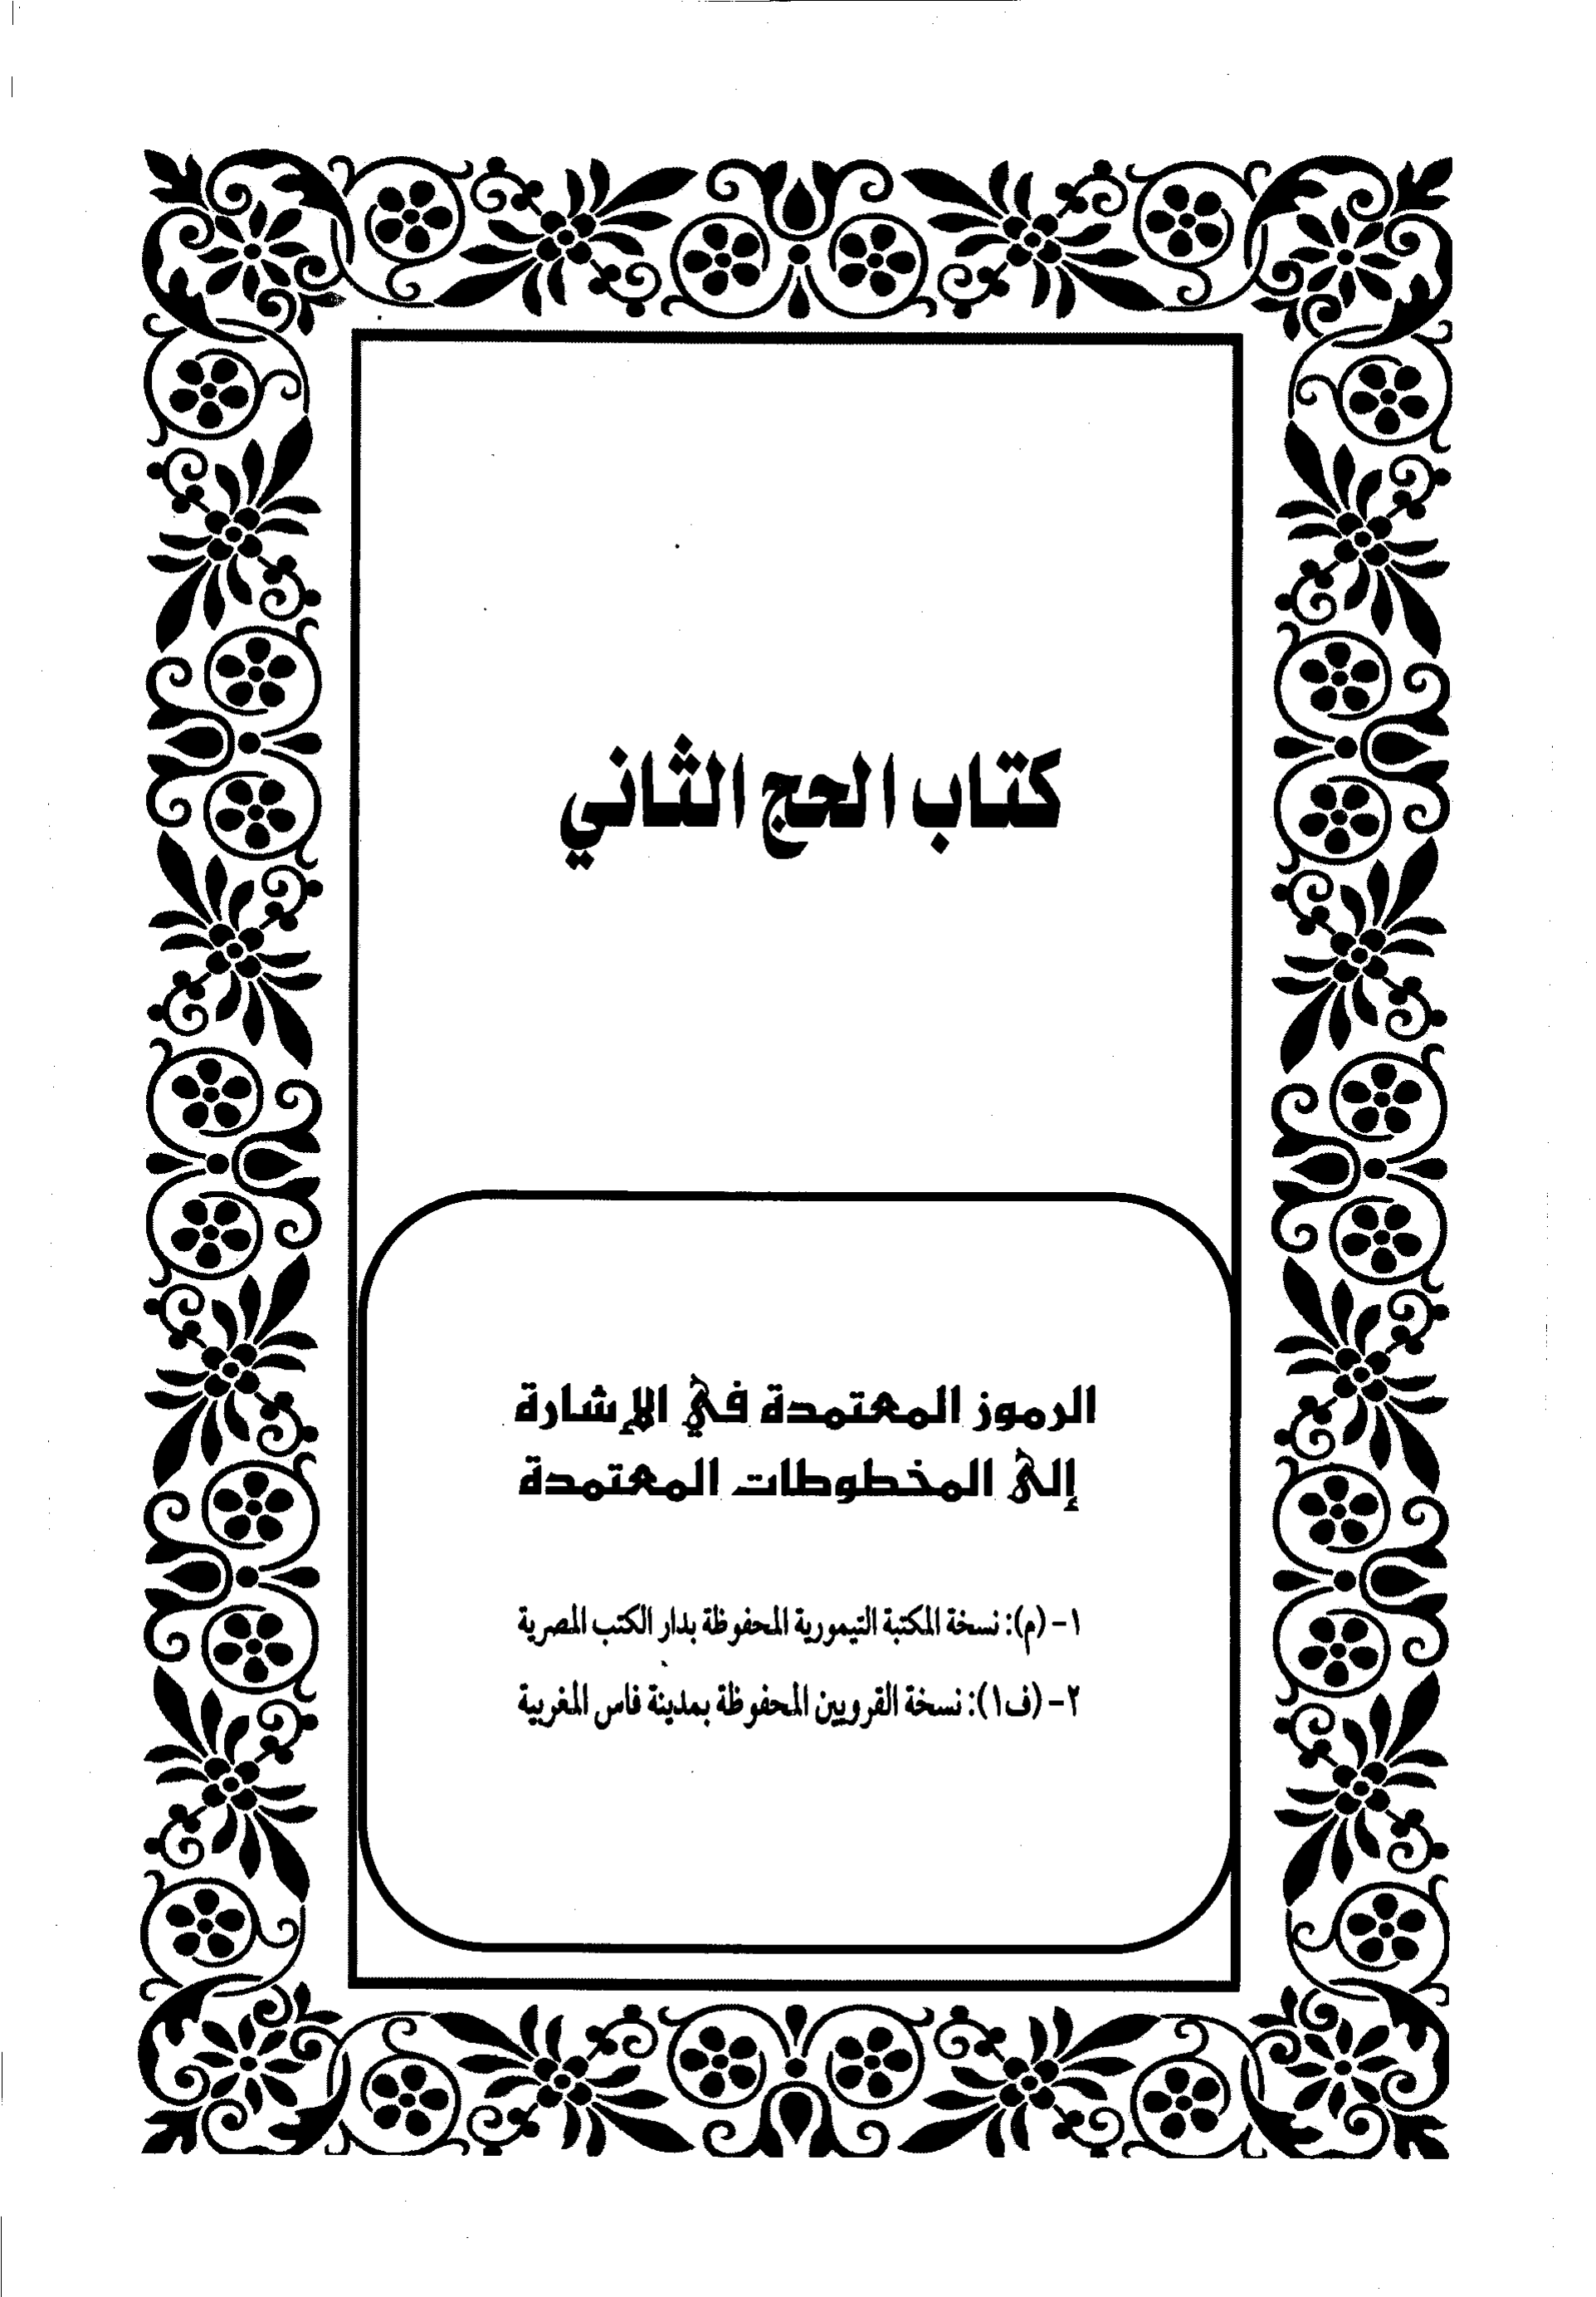 كتاب الحج الثاني
الرموز المعتمدة في الإشارة
إلى المخطوطات المعتمدة
١- (م): نسخة المكتبة التيمورية المحفوظة بدار الكتب المصرية
٢- (ف١): نسخة القرويين المحفوظة بمدينة فاس المغربية